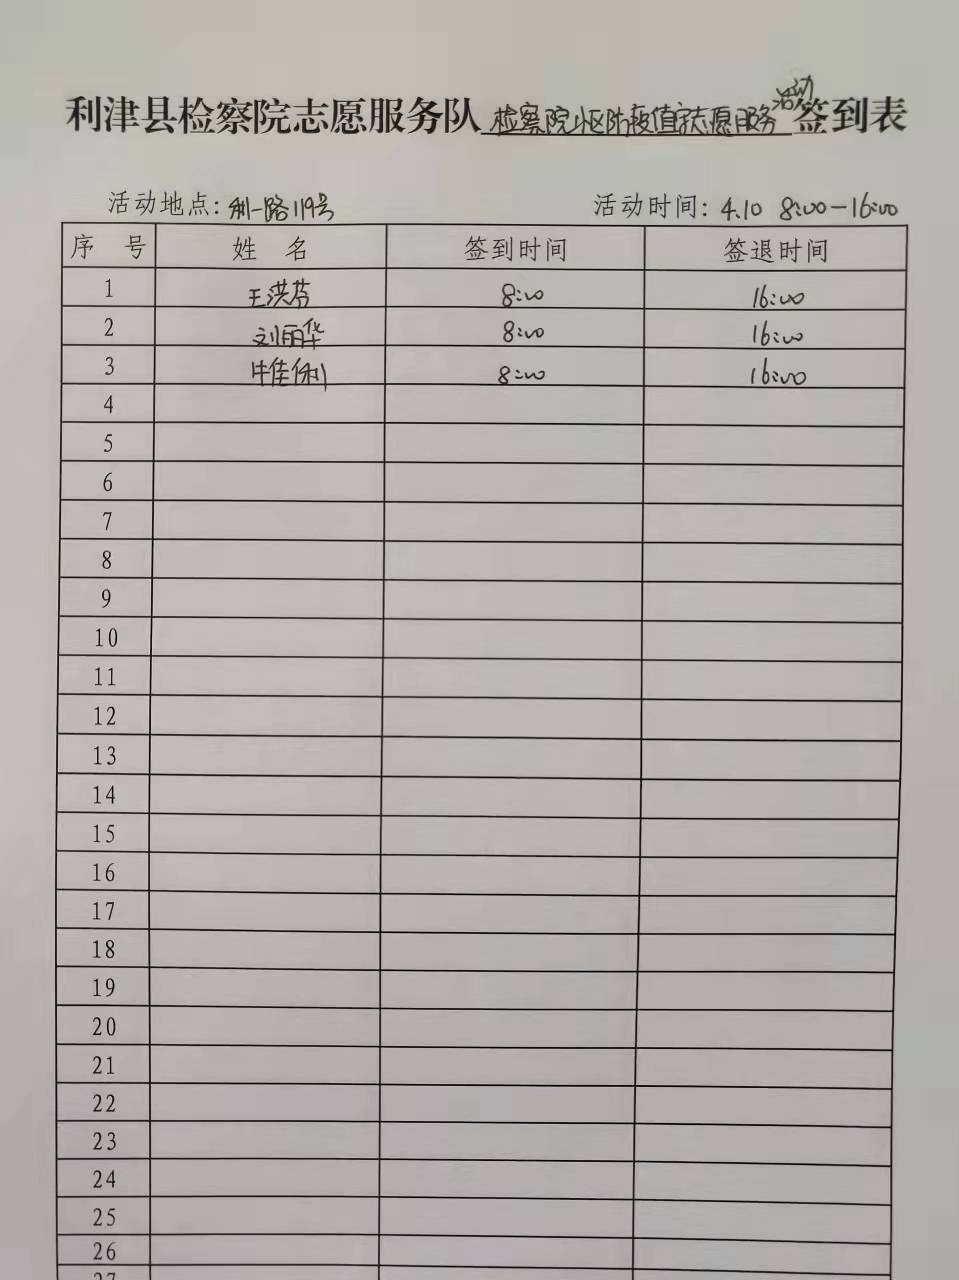 利津县检察院志愿服务队检察院小区防疫值守志愿服务活动签到表
活动地点：利一路119号 活动时间：4.10 8:00-16:00
序 号 姓 名 签到时间 签退时间
1 王洪芬 8:00 16:00
2 刘丽华 8:00 16:00
3 牛佳俐 8:00 16:00
4
5
6
7
8
9
10
11
12
13
14
15
16
17
18
19
20
21
22
23
24
25
26
27